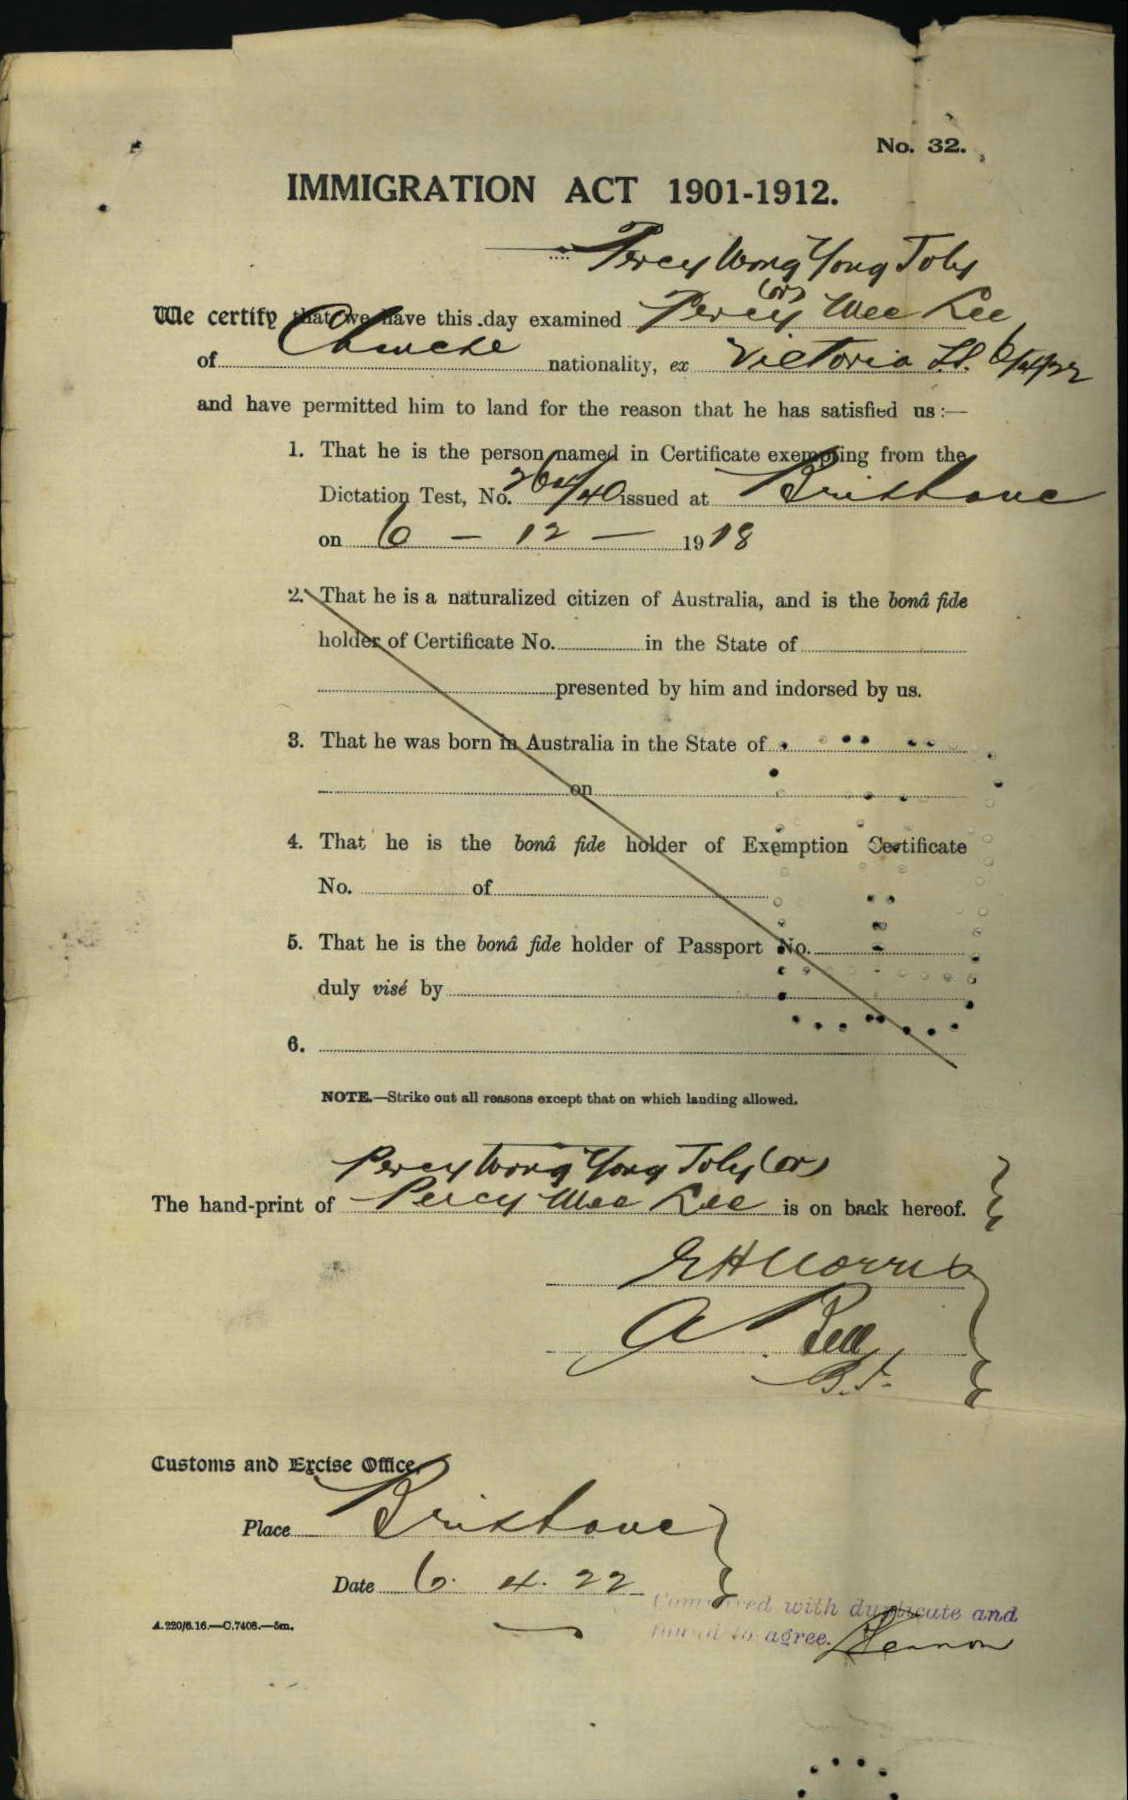 No. 32.
IMMIGRATION ACT 1901-1912.
Percy Wong Yong Toby
(or)
We certify that we have this day examined Percy Wee Lee
of Chinese nationality, ex Victoria 6/4/22
and have permitted him to land for the reason that he has satisfied us:—
1. That he is the person named in Certificate exempting from the
Dictation Test, No. 264/40 issued at Brisbane
on 6 - 12 - 1918
2. That he is a naturalized citizen of Australia, and is the bonâ fide
holder of Certificate No. in the State of
presented by him and indorsed by us.
3. That he was born in Australia in the State of
on
4. That he is the bonâ fide holder of Exemption Certificate
No. of
5. That he is the bonâ fide holder of Passport No.
duly visé by
6.
NOTE.—Strike out all reasons except that on which landing allowed.
Percy Wong Yong Toby (or)
The hand-print of Percy Wee Lee is on back hereof.
Customs and Excise Office,
Place Brisbane
Date 6. 4. 22
Compared with duplicate and
found to agree.
A.220/6.16.—C.7408.—5m.